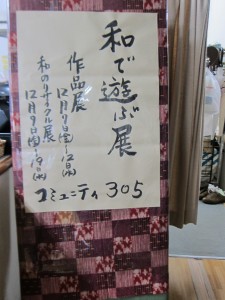 和で遊ぶ展
作品展
12月9日(金)-12日(月)
和のリサイクル展
12月9日(金)-19日(月)
コミュニティ305